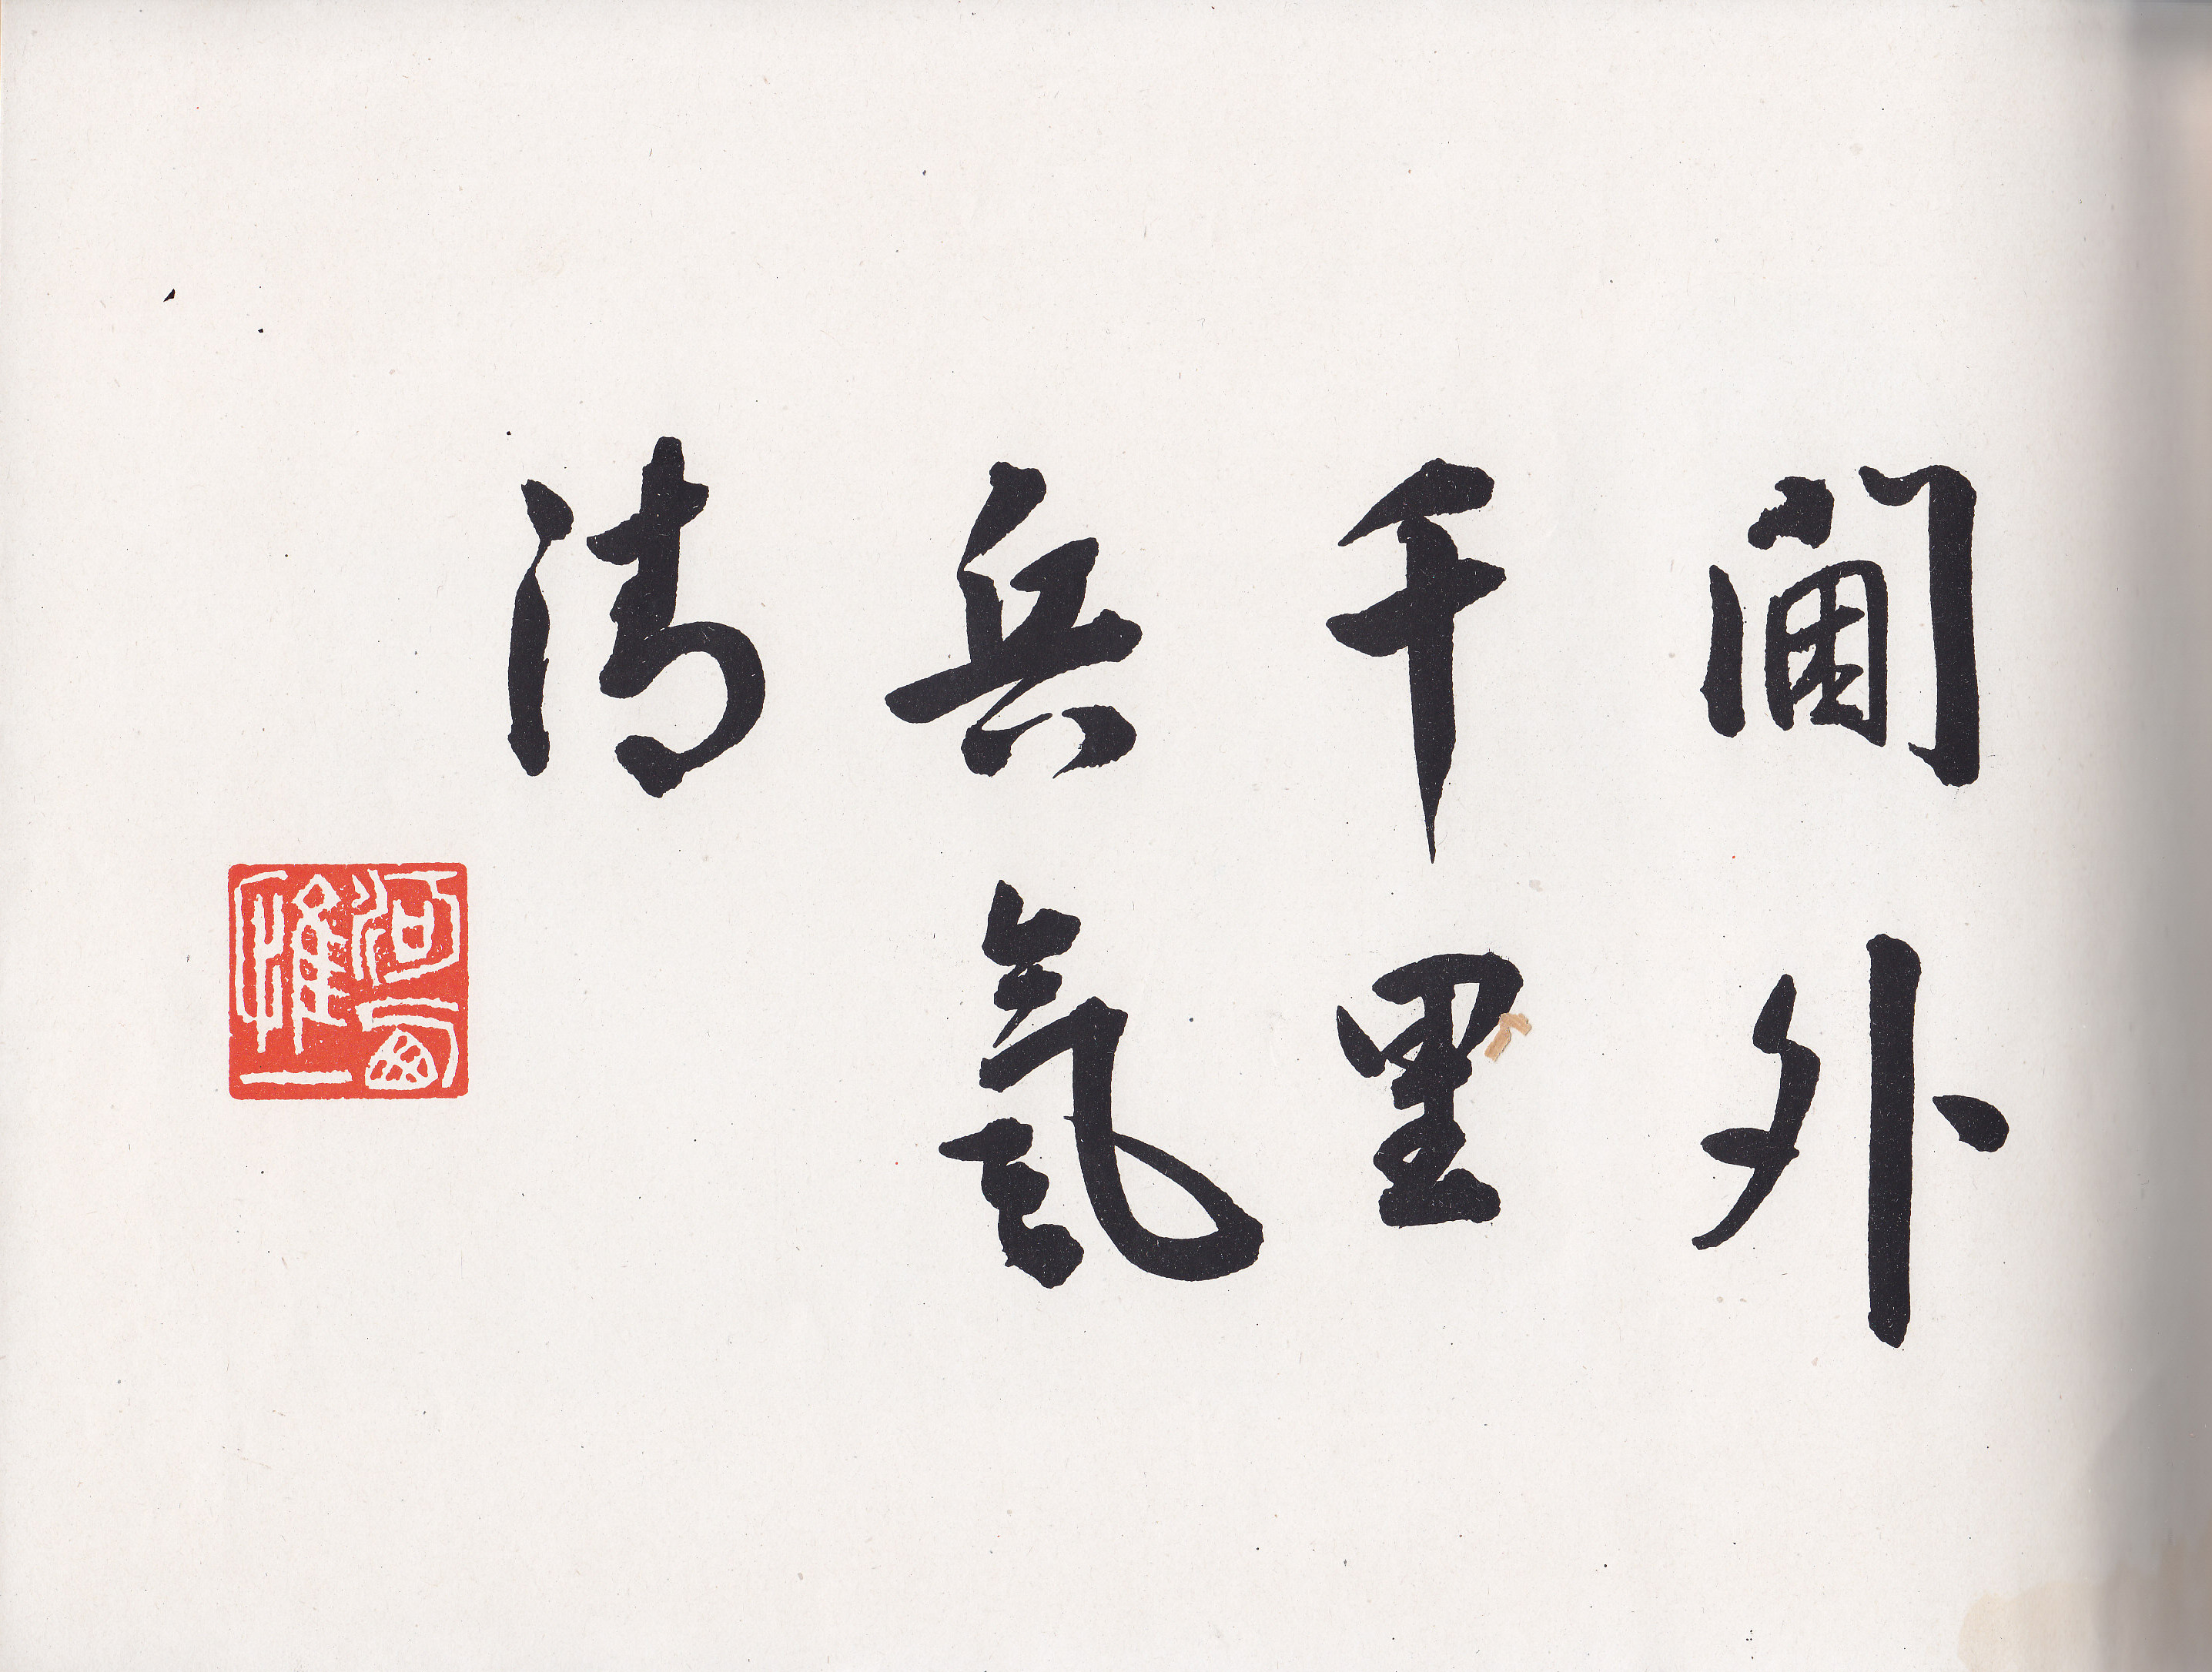 閫外
千里
兵氣
清